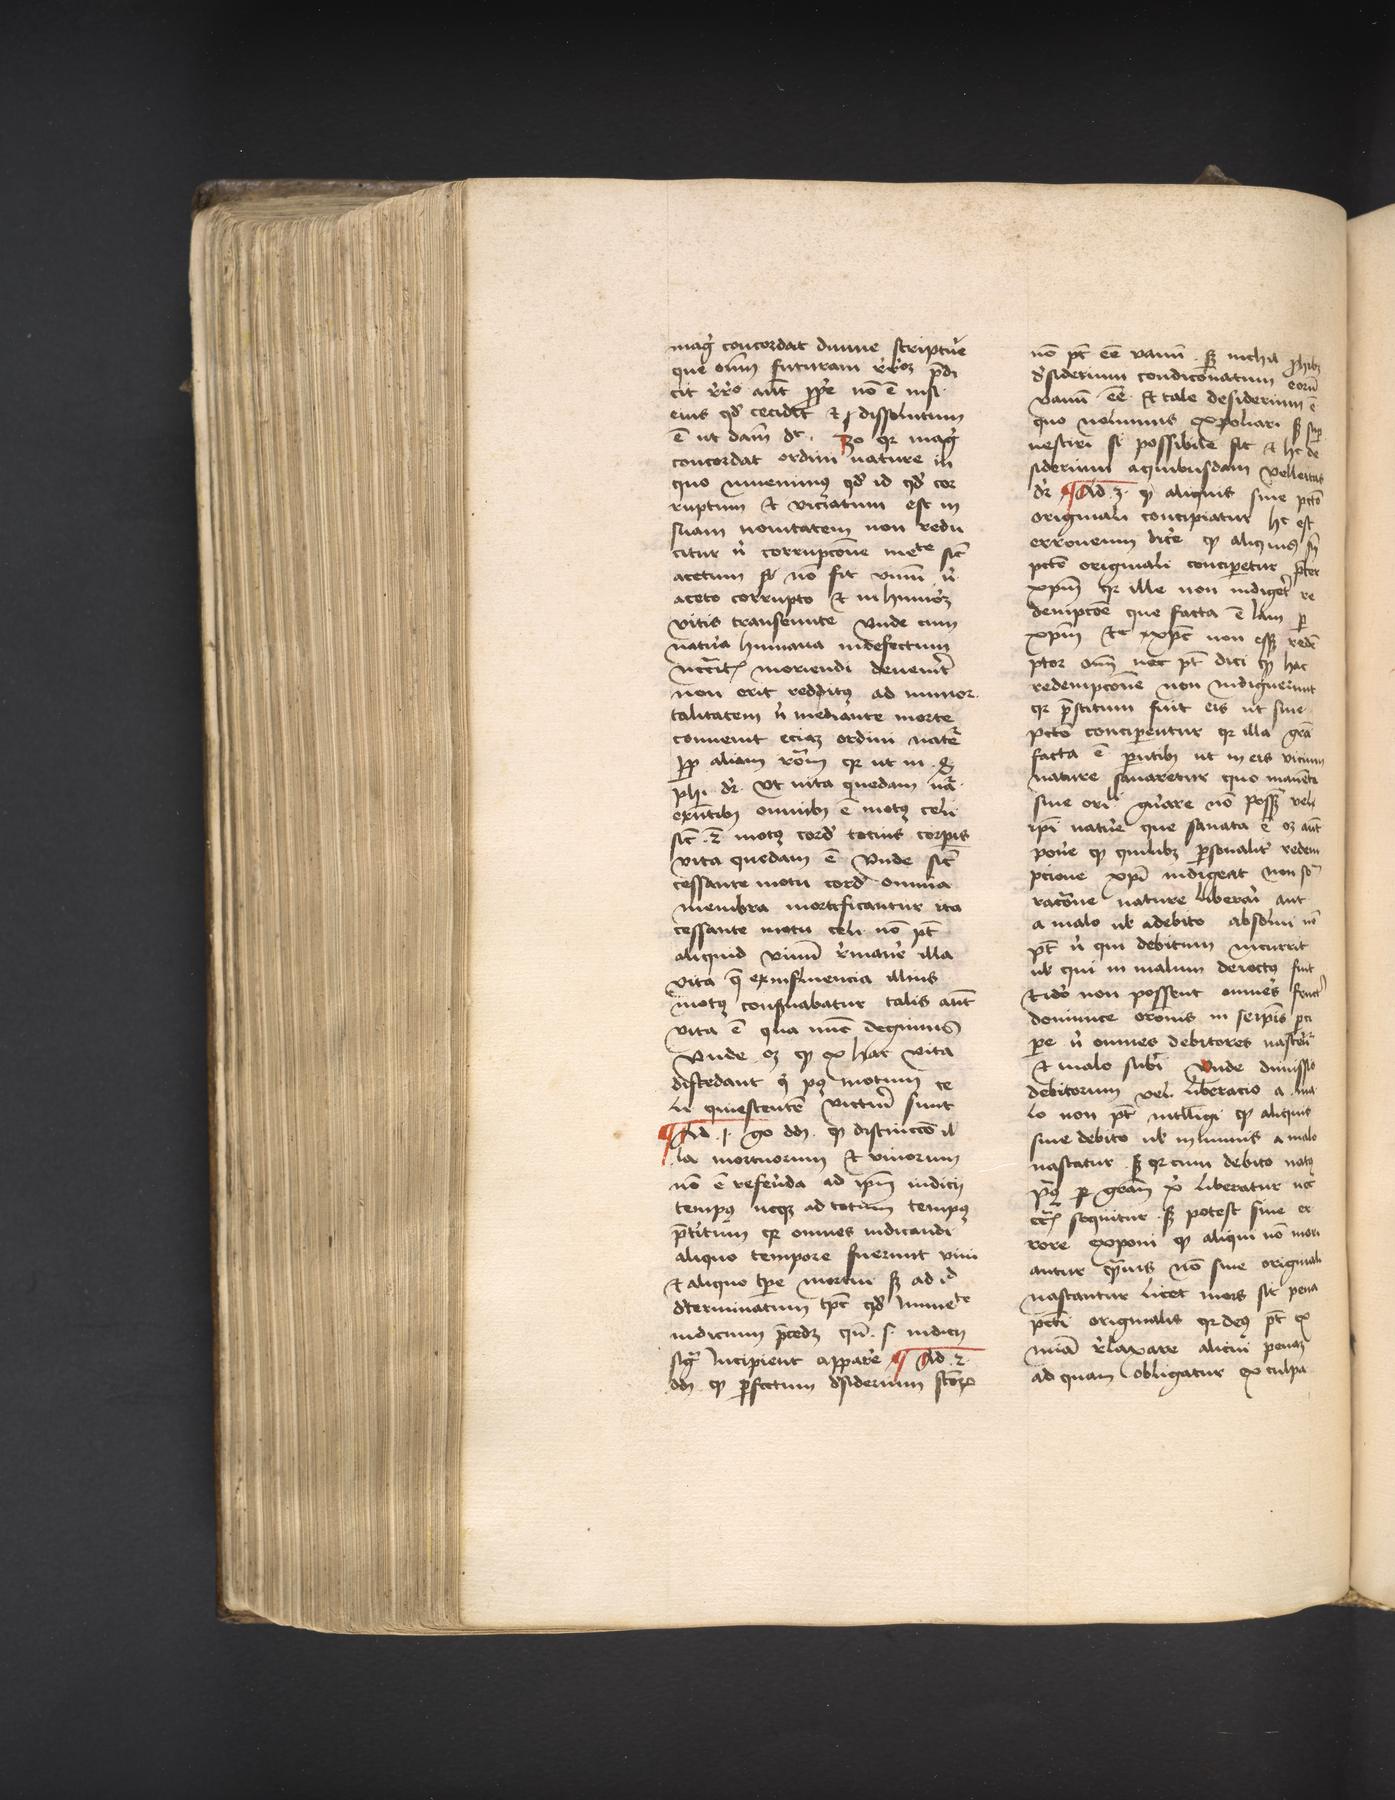 mag̉ concordat diuine scriptur̉e
que om̅m futuram rͬroꝫ p̅di
cit rͬro aut̅ ꝓpͥe no̅ e̅ nisi
eius qd̉ cecidit et dissolutum
e̅ ut dam̅ dt. 3o qꝛ mag̉
concordat ordini nature in
quo inuenimꝯ qd̉ id qd̉ cor
ruptum et viciatum est in
suam nouitatem non redu
citur nỉ corrupco̅ne mete sic̅
acetum no̅ fit vinu̅ nỉ
aceto corrupto et in humor̉ꝫ
vitis transeunte Vnde cum
natur̉a humana in defectum
moriendi deuenit̉
non erit redditꝯ ad immor
talitatem nỉ mediante morte
conuenit eciaꝫ ordini nature̅
ꝓp aliam ro̅m qꝛ ut in .8.
phi. dꝛ. Vt vita quedam na̅
exn̅tibꝯ omnibꝯ e̅ motꝯ celi
sic̅ .z̅ motꝯ cord̉ totius corpis
vita quedam e̅ Vnde sic̅
cessante motu cord̉ omnia
membra mortificantur ita
cessante motu celi no̅ pt̅
aliquid viuu̅ rͬmaner̉e illa
vita q̅ ex influencia illius
motꝯ conseruabatur talis aut̅
vita e̅ qua nu̅c degimus
Vnde oꝫ qꝫ ex hac vita
discedant qͥ pꝯ motum ce
li quiescente̅ victuri̅ sunt
¶ Ad .1. go dd̅. qꝫ distincco̅ il
la mortuorum et viuorum
no̅ e̅ referenda ad ipm̅ iudicij
tempꝯ neqꝫ ad totum tempꝯ
p̅teritum qꝛ omnes iudicandi
aliquo tempore fuerunt viui
et aliquo tp̅e mortui sꝫ ad id
d̉terminatum tp̅c qd̉ immete
iudicium p̅cedꝫ qn̅. s. iudicij
sig̉ incipient appar̉e ¶ Ad .2.
dd̅ qꝫ perfectum d̉siderium sco̅rꝫ
no̅ pt̅ ee̅ vanu̅ . sꝫ nichil ꝓhibꝫ
d̉siderium condico̅natum eoru̅
vanu̅ ee̅. Et tale desiderium e̅
quo nolumus expoliari sꝫ sup
uestiri si possibile sit et hc de
siderium a quibusdam velleitas
dꝛ ¶ Ad .3. qꝫ aliquis sine pcto̅
originali concipiatur hc est
erroneum dic̉e qꝫ aliquis sn̅
pcto̅ originali conciperetur p̅ter
xpm̅ qꝛ ille non indiger̉et re
dempco̅e que facta e̅ lam per
xpm̅ etc xpc̅ non esset rede̅
ptor om̅ nec pt̅ dici qꝫ hac
redempco̅ne non indiguerunt
qꝛ p̅stitum fuit eis ut sine
pcto̅ conciperentur qꝛ illa gra̅
facta e̅ pn̅tibꝯ ut in eis vicium
nature sanaretur quo manente̅
sine ori.li gn̉are no̅ possꝫ vel
ipi̅ natur̉e que sanata e̅ oꝫ aut̅
poner̉e qꝫ quilibꝫ personalit̉ redem
pcione xpi̅ indigeat non so̅
raco̅ne nature liberarỉ aut
a malo ul̉ a debito absolui no̅
pt̅ nỉ qui debitum incurrit
ul̉ qui in malum deiectꝯ fuit
et idỏ non possent omnes fruct̉
dominice oro̅nis in seipi̅s p̅ci
pe nỉ omnes debitores nascer̉
et malo subi̅ Vnde dimissio
debitorum vel. liberacio a ma
lo non pt̅ intelligi qꝫ aliquis
sine debito ul̉ inmunis a malo
nascatur sꝫ qꝛ cum debito natꝯ
p̅ꝯ per gra̅m xi̅ liberatur nec
sequitur .sꝫ potest sine er
rore exponi qꝫ aliqui no̅ mori
antur quamuis no̅ sine originali
nascantur licet mors sit pena
pcti̅ originalis qꝛ deꝯ pt̅ ex
mia̅ rͬlaxare alicui penaꝫ
ad quam obligatur ex culpa